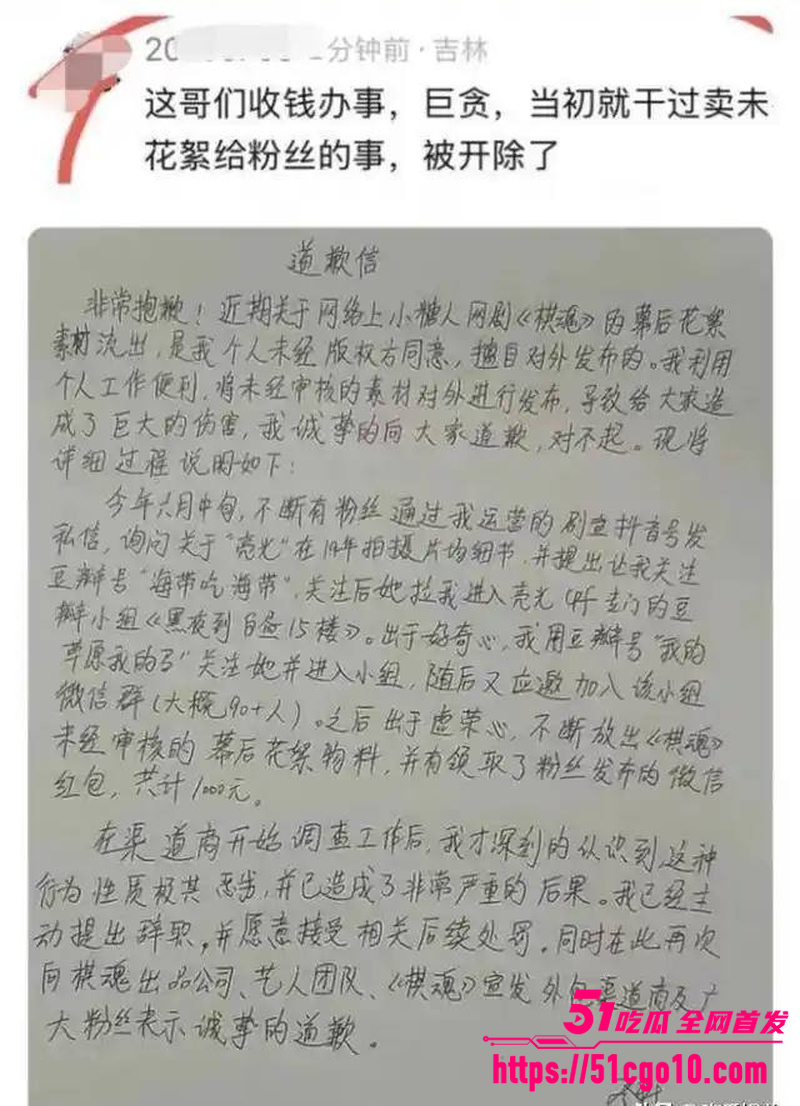 20 分钟前·吉林
这哥们收钱办事，巨贪，当初就干过卖未
花絮给粉丝的事，被开除了
道歉信
非常抱歉！近期关于网络上小糖人网剧《棋魂》的幕后花絮
素材流出，是我个人未经版权方同意，擅自对外发布的。我利用
个人工作便利，将未经审核的素材对外进行发布，导致给大家造
成了巨大的伤害，我诚挚的向大家道歉，对不起。现将
详细过程说明如下：
今年六月中旬，不断有粉丝通过我运营的剧宣抖音号发
私信，询问关于“亮光”在19年拍摄片场细节，并提出让我关注
豆瓣号“海带吃海带”，关注后她拉我进入亮光CP专门的豆
瓣小组《黑夜到白昼15楼》。出于好奇心，我用豆瓣号“我的
草原我的”关注她并进入小组，随后又应邀加入该小组
微信群（大概90+人）。之后出于虚荣心，不断放出《棋魂》
未经审核的幕后花絮物料，并有领取了粉丝发布的微信
红包，共计1000元。
在渠道商开始调查工作后，我才深刻的认识到这种
行为性质极其恶劣，并已造成了非常严重的后果。我已经主
动提出辞职，并愿意接受相关后续处罚。同时在此再次
向棋魂出品公司、艺人团队、《棋魂》宣发外包渠道商及广
大粉丝表示诚挚的道歉。
51吃瓜 全网首发
https://51cgo10.com